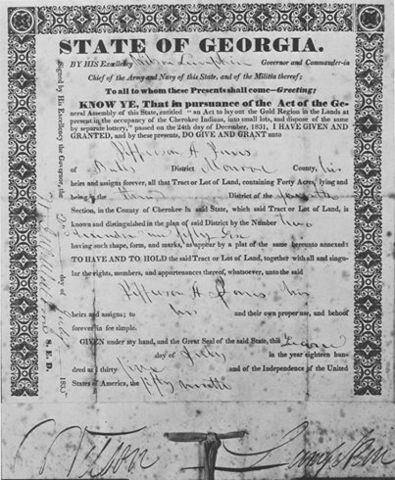 STATE OF GEORGIA.
BY HIS Excellency Wilson Lumpkin Governor and Commander-in
Chief of the Army and Navy of this State, and of the Militia thereof;
To all to whom these Presents shall come—Greeting;
KNOW YE, That in pursuance of the Act of the Ge-
neral Assembly of this State, entitled "an Act to lay out the Gold Region in the Lands at
present in the occupancy of the Cherokee Indians, into small lots, and dispose of the same
by separate lottery," passed on the 24th day of December, 1831, I HAVE GIVEN AND
GRANTED, and by these presents, DO GIVE AND GRANT unto
Jefferson A. Jones
of District Monroe County, his
heirs and assigns forever, all that Tract or Lot of Land, containing Forty Acres, lying and
being in the Third District of the fourth
Section, in the County of Cherokee in said State, which said Tract or Lot of Land, is
known and distinguished in the plan of said District by the Number two
hundred fifty Six
having such shape, form, and marks, as appear by a plat of the same hereunto annexed:
TO HAVE AND TO HOLD the said Tract or Lot of Land, together with all and singu-
lar the rights, members, and appurtenances thereof, whatsoever, unto the said
Jefferson A Jones his
heirs and assigns; to his and their own proper use, and behoof
forever in fee simple.
GIVEN under my hand, and the Great Seal of the said State, this
day of July in the year eighteen hun-
dred and thirty five and of the Independence of the United
States of America, the fifty ninth
Signed by His Excellency the Governor, the
day of July 1835
S. E. D.
Wilson Lumpkin